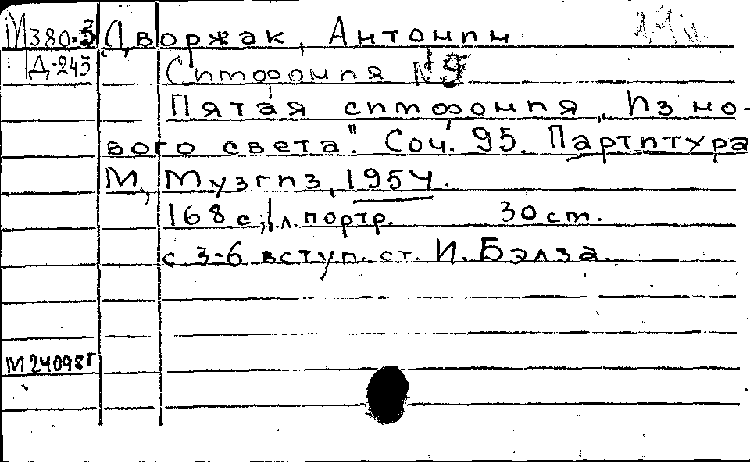 М380-3 Дворжак, Антонин
Д-243 Симфония №5
Пятая симфония „Из но-
вого света". Соч. 95. Партитура
М., Музгиз, 1954.
168 с., 1 л. портр. 30 ст.
с 3-6 вступ. ст. И. Бэлза
М24098г